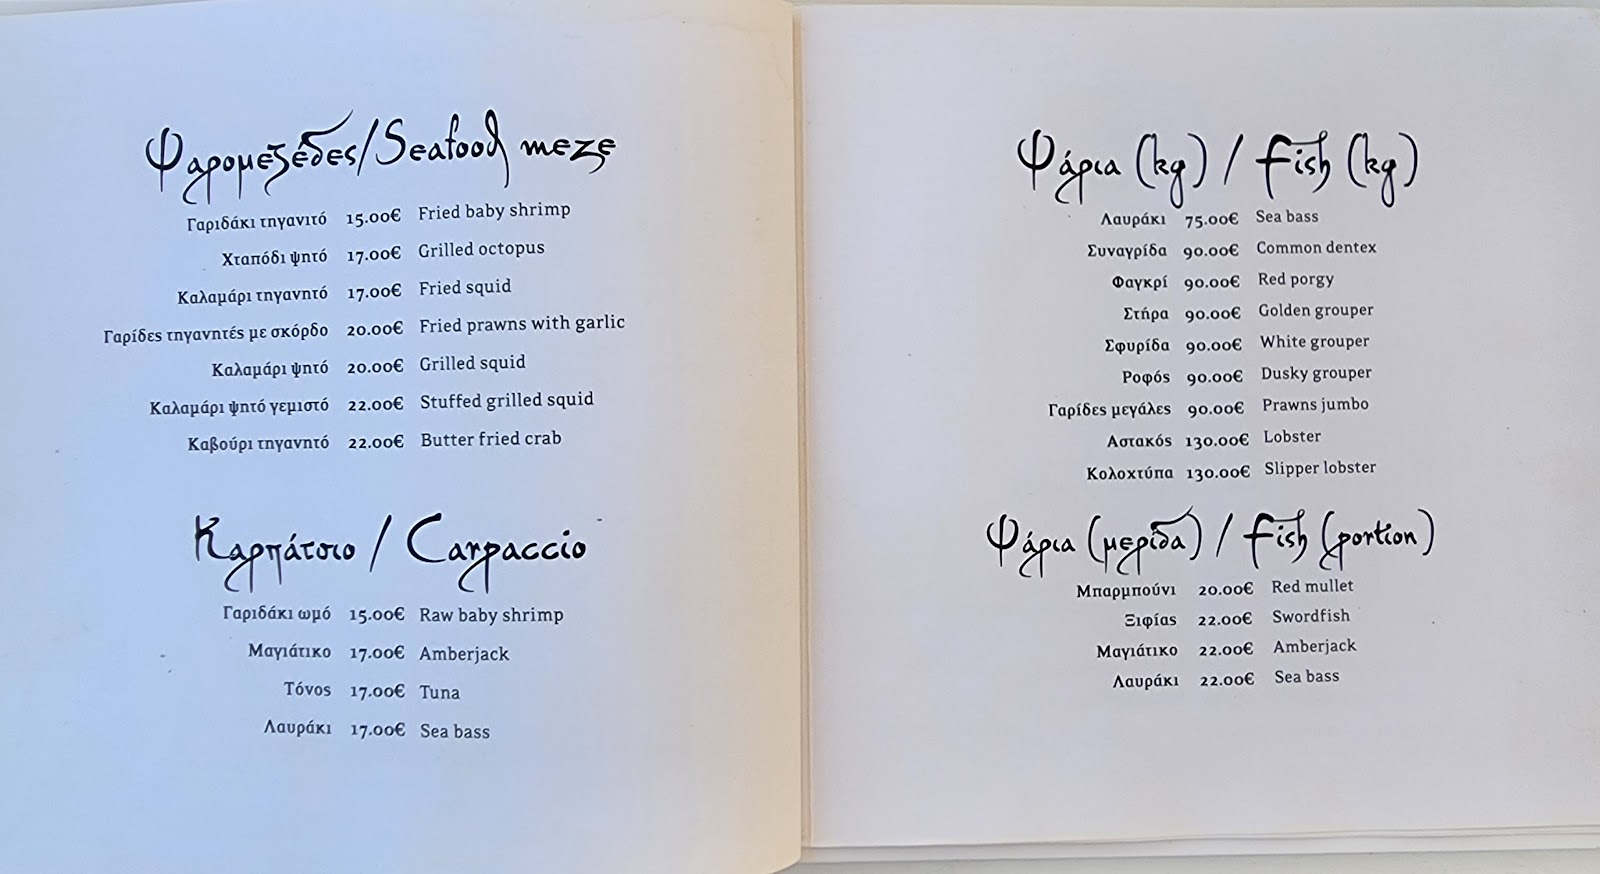 Ψαρομεζέδες/Seafood meze
Γαριδάκι τηγανιτό 15.00€ Fried baby shrimp
Χταπόδι ψητό 17.00€ Grilled octopus
Καλαμάρι τηγανητό 17.00€ Fried squid
Γαρίδες τηγανητές με σκόρδο 20.00€ Fried prawns with garlic
Καλαμάρι ψητό 20.00€ Grilled squid
Καλαμάρι ψητό γεμιστό 22.00€ Stuffed grilled squid
Καβούρι τηγανητό 22.00€ Butter fried crab
Καρπάτσιο / Carpaccio
Γαριδάκι ωμό 15.00€ Raw baby shrimp
Μαγιάτικο 17.00€ Amberjack
Τόνος 17.00€ Tuna
Λαυράκι 17.00€ Sea bass
Ψάρια (kg) / Fish (kg)
Λαυράκι 75.00€ Sea bass
Συναγρίδα 90.00€ Common dentex
Φαγκρί 90.00€ Red porgy
Στήρα 90.00€ Golden grouper
Σφυρίδα 90.00€ White grouper
Ροφός 90.00€ Dusky grouper
Γαρίδες μεγάλες 90.00€ Prawns jumbo
Αστακός 130.00€ Lobster
Κολοχτύπα 130.00€ Slipper lobster
Ψάρια (μερίδα) / Fish (portion)
Μπαρμπούνι 20.00€ Red mullet
Ξιφίας 22.00€ Swordfish
Μαγιάτικο 22.00€ Amberjack
Λαυράκι 22.00€ Sea bass